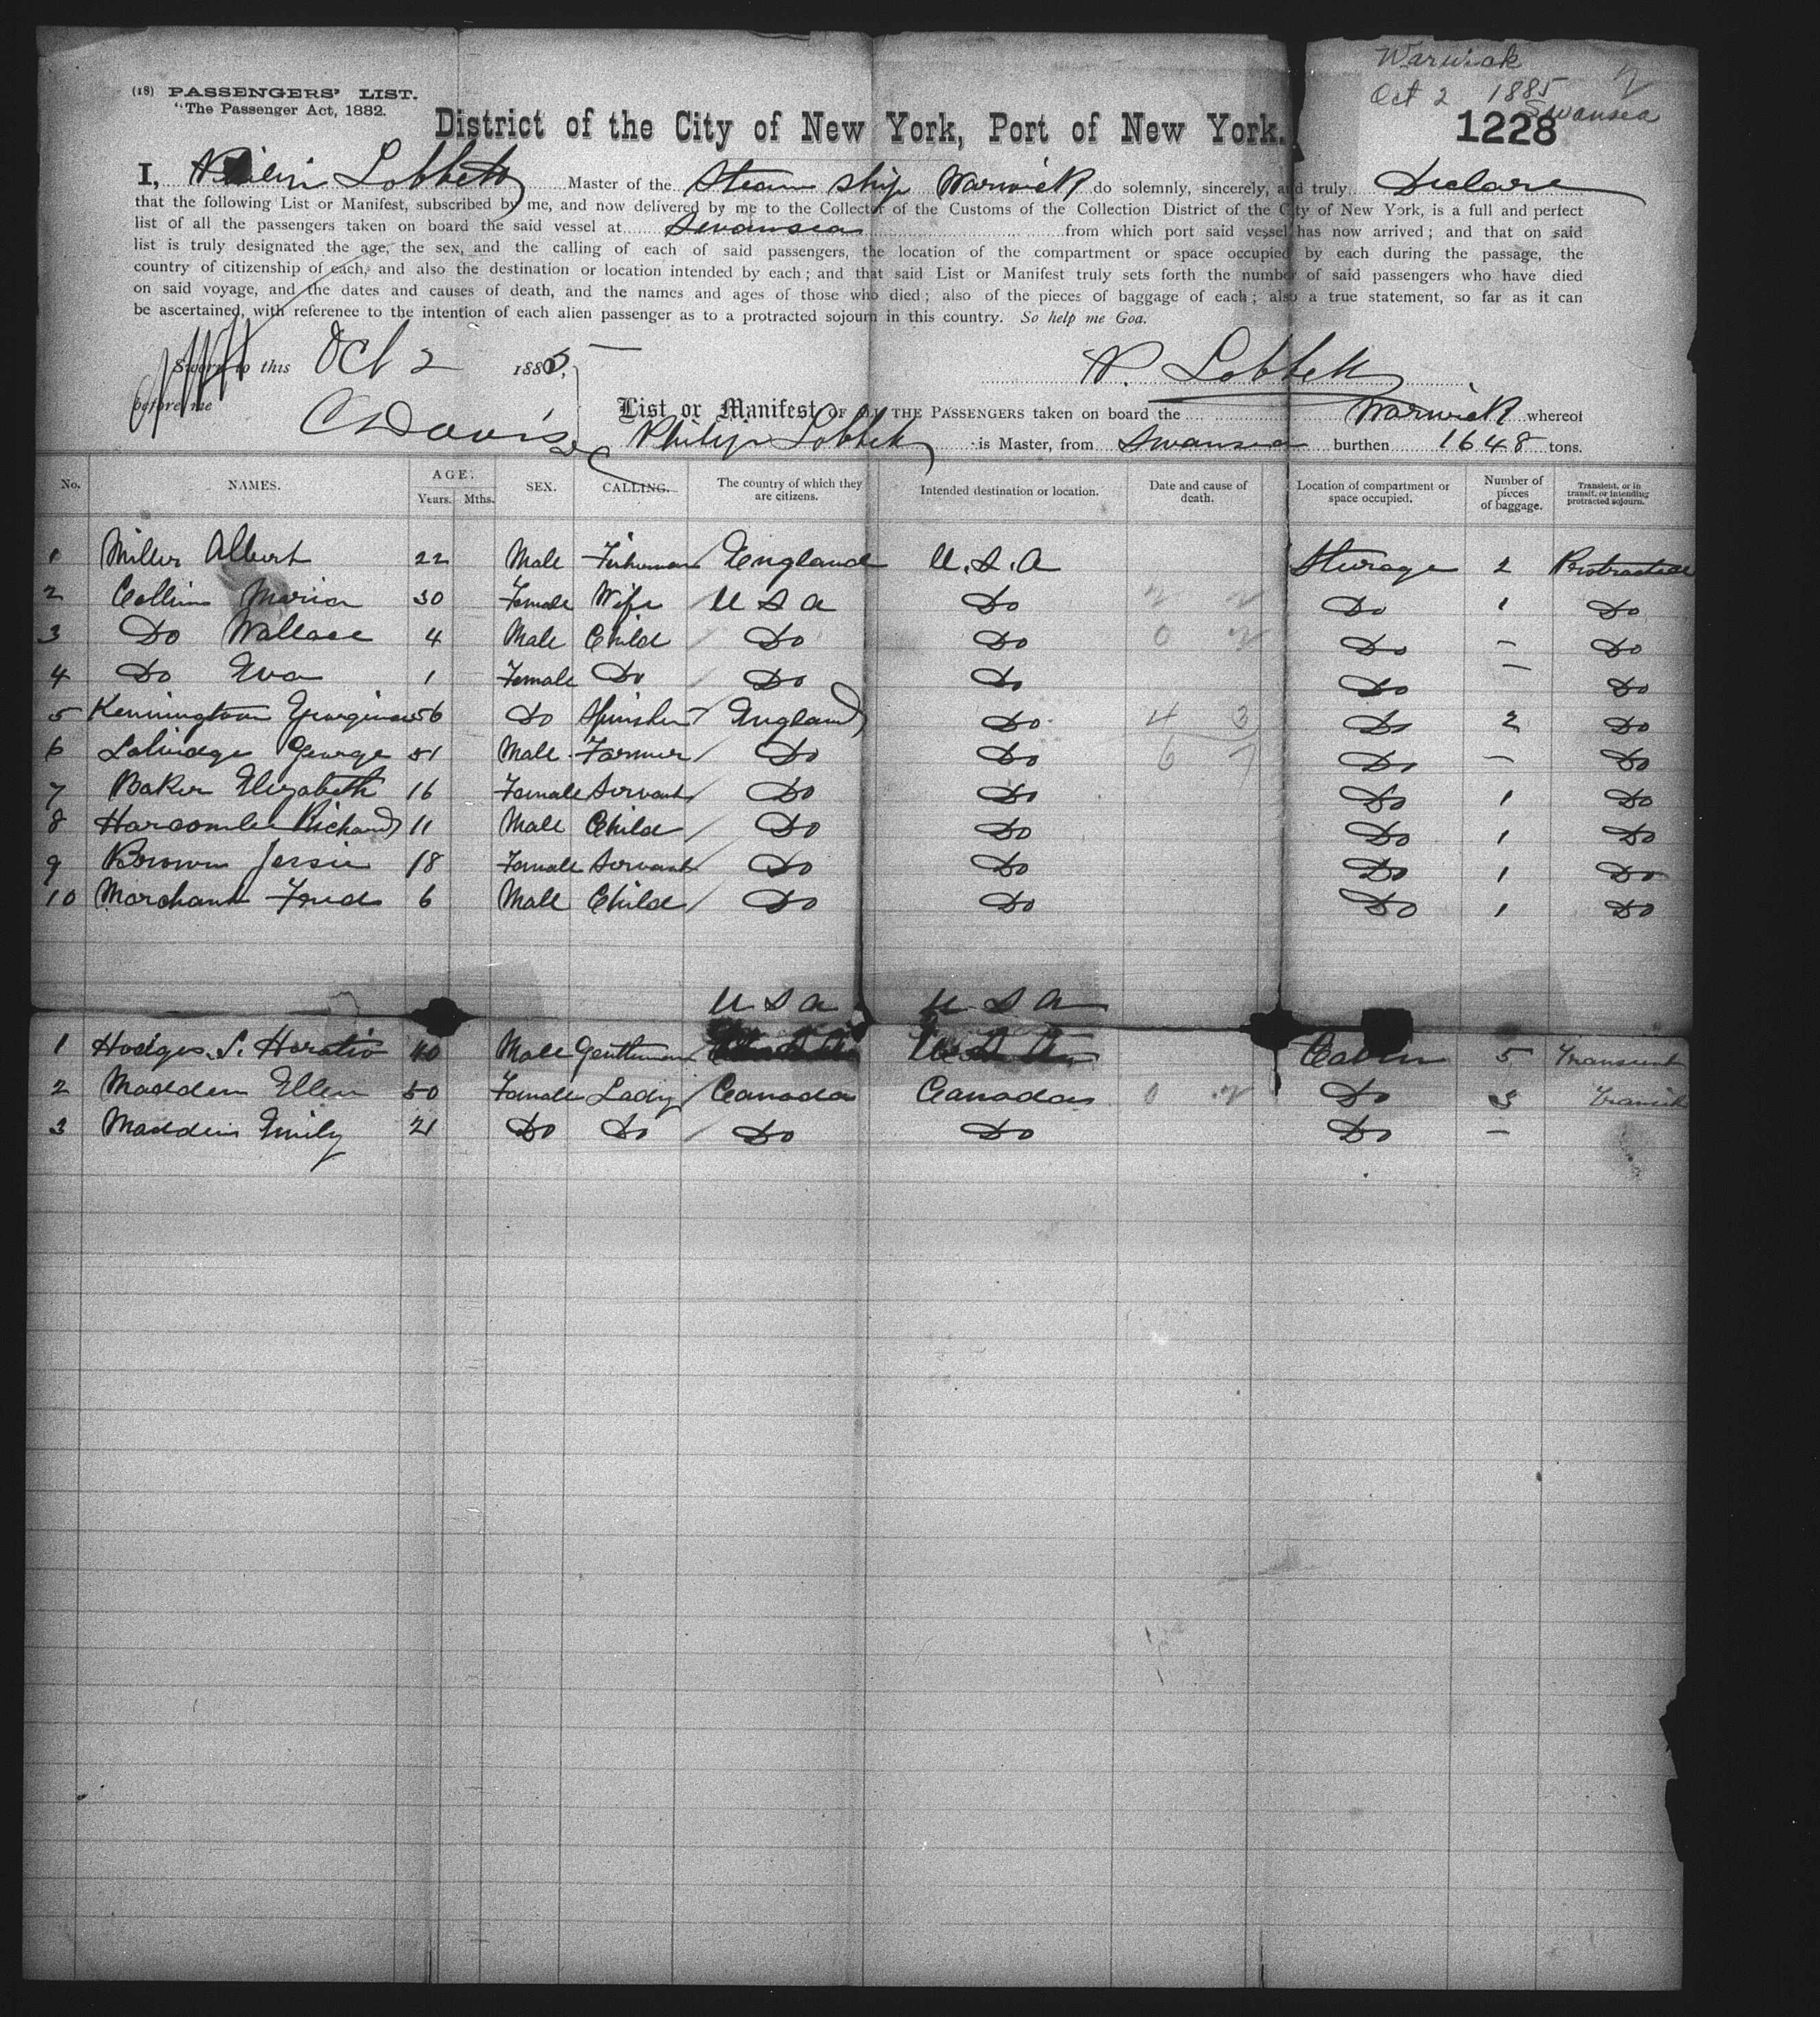 Warwick
Oct 2 1885
Swansea
(18) PASSENGERS' LIST.
"The Passenger Act, 1882.
District of the City of New York, Port of New York.
1228
I, Philip Lobbett Master of the Steam ship Warwick do solemnly, sincerely, and truly Declare
that the following List or Manifest, subscribed by me, and now delivered by me to the Collector of the Customs of the Collection District of the City of New York, is a full and perfect
list of all the passengers taken on board the said vessel at Swansea from which port said vessel has now arrived; and that on said
list is truly designated the age, the sex, and the calling of each of said passengers, the location of the compartment or space occupied by each during the passage, the
country of citizenship of each, and also the destination or location intended by each; and that said List or Manifest truly sets forth the number of said passengers who have died
on said voyage, and the dates and causes of death, and the names and ages of those who died; also of the pieces of baggage of each; also a true statement, so far as it can
be ascertained, with reference to the intention of each alien passenger as to a protracted sojourn in this country. So help me God.
Sworn to this Oct 2 1885,
P. Lobbett
before me
C Davis
List or Manifest OF ALL THE PASSENGERS taken on board the Warwick whereof
Philip Lobbett is Master, from Swansea burthen 1648 tons.
No. NAMES. AGE. Years. Mths. SEX. CALLING. The country of which they are citizens. Intended destination or location. Date and cause of death. Location of compartment or space occupied. Number of pieces of baggage. Transient, or in transit, or intending protracted sojourn.
1 Miller Albert 22 Male Fisherman England U.S.A Sturage 2 Protracted
2 Collins Maria 30 Female Wife U S A Do 2 2 Do 1 Do
3 Do Wallace 4 Male Child Do Do 0 2 Do - Do
4 Do Eva 1 Female Do Do Do Do - Do
5 Kennington Georgina 56 Do Spinster England Do 4 3 Do 2 Do
6 George 51 Male Farmer Do Do 6 7 Do - Do
7 Baker Elizabeth 16 Female Servant Do Do Do 1 Do
8 Harcombe Richard 11 Male Child Do Do Do 1 Do
9 Brown Jessie 18 Female Servant Do Do Do 1 Do
10 Marchant Fred 6 Male Child Do Do Do 1 Do
U S A U S A
1 Hodges S. Horatio 40 Male Gentleman Cabin 5 Transient
2 Madden Ellen 50 Female Lady Canada Canada 0 2 Do 3 Transit
3 Madden Emily 21 Do Do Do Do Do -